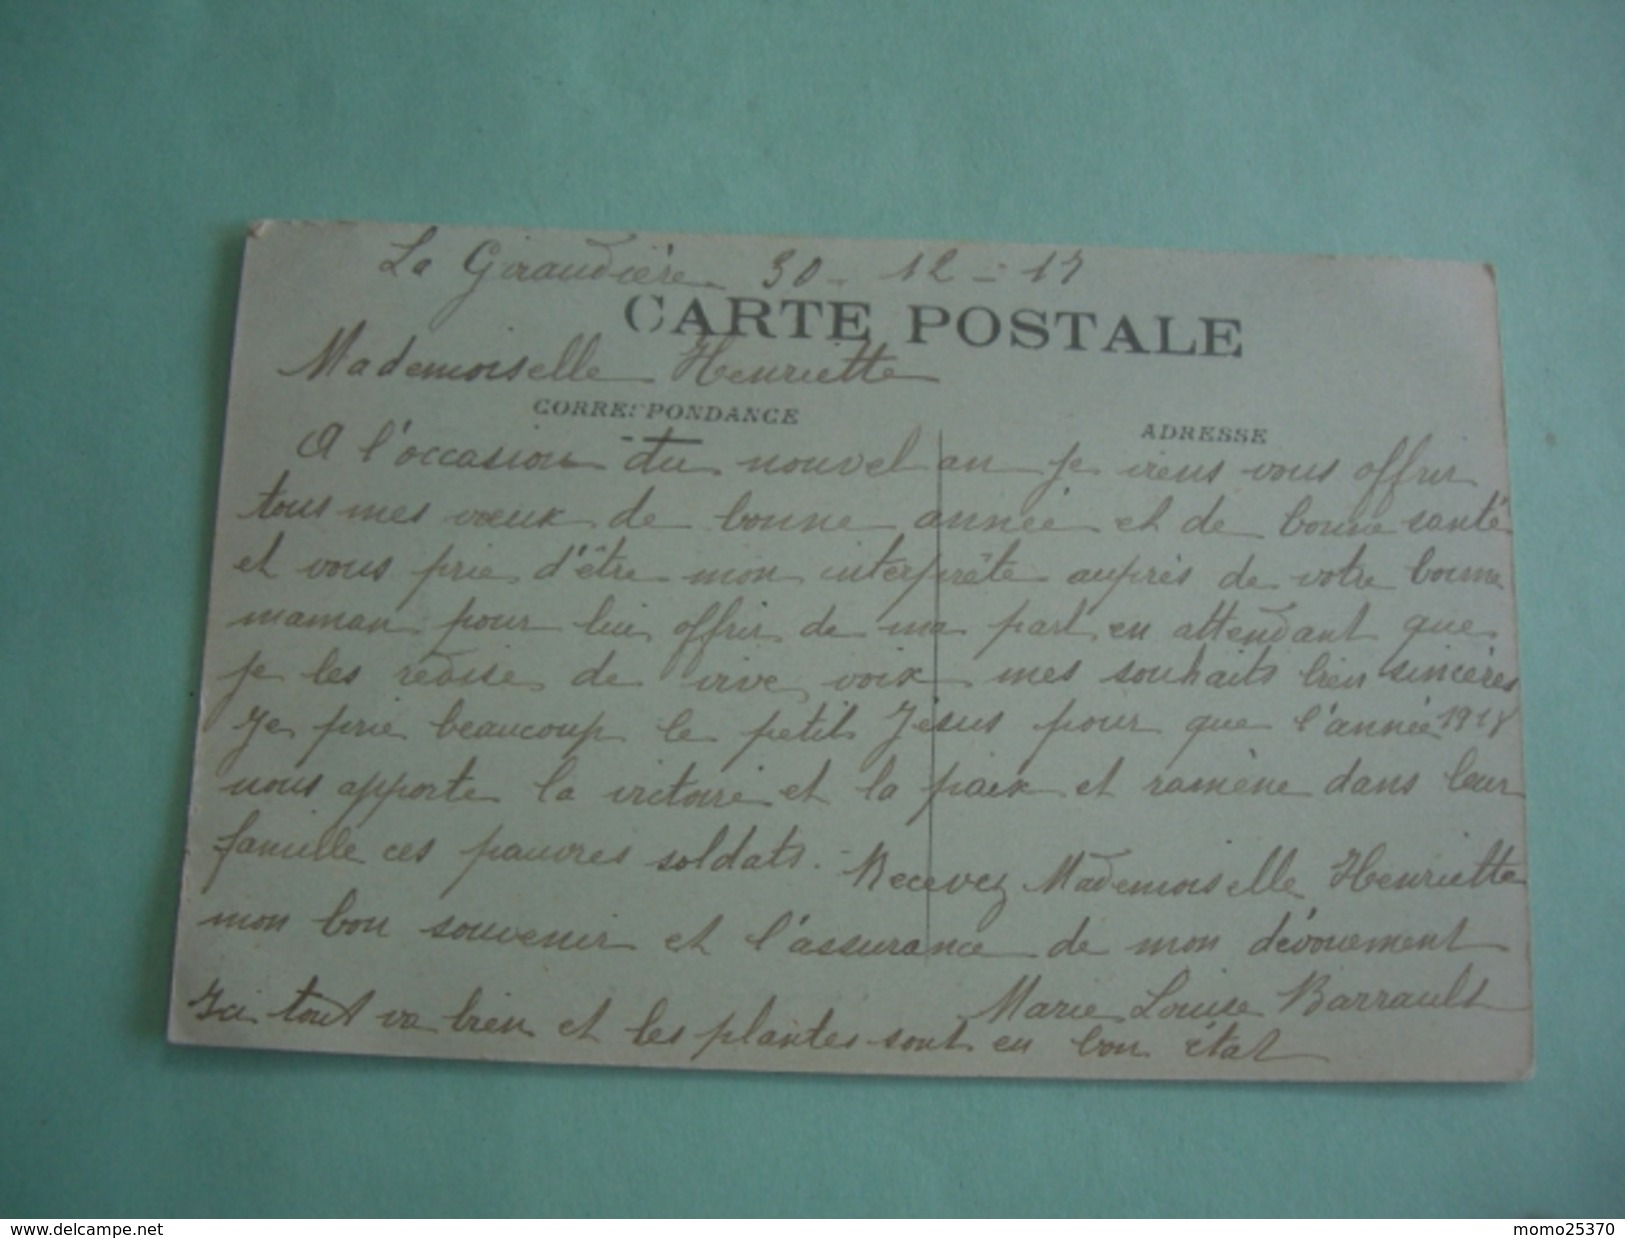 La Giraudière 30 - 12 - 17
CARTE POSTALE
Mademoiselle Henriette
CORRESPONDANCE
ADRESSE
A l'occasion du nouvel an je viens vous offrir
tous mes vœux de bonne année et de bonne santé
et vous prie d'être mon interprète auprès de votre bonne
maman pour lui offrir de ma part, en attendant que
je les redise de vive voix mes souhaits bien sincères
Je prie beaucoup le petit Jésus pour que l'année 1918
nous apporte la victoire et la paix et ramène dans leur
famille ces pauvres soldats. - Recevez Mademoiselle Henriette
mon bon souvenir et l'assurance de mon dévouement
Marie Louise Barrault
Ici tout va bien et les plantes sont en bon état
www.delcampe.net
momo25370